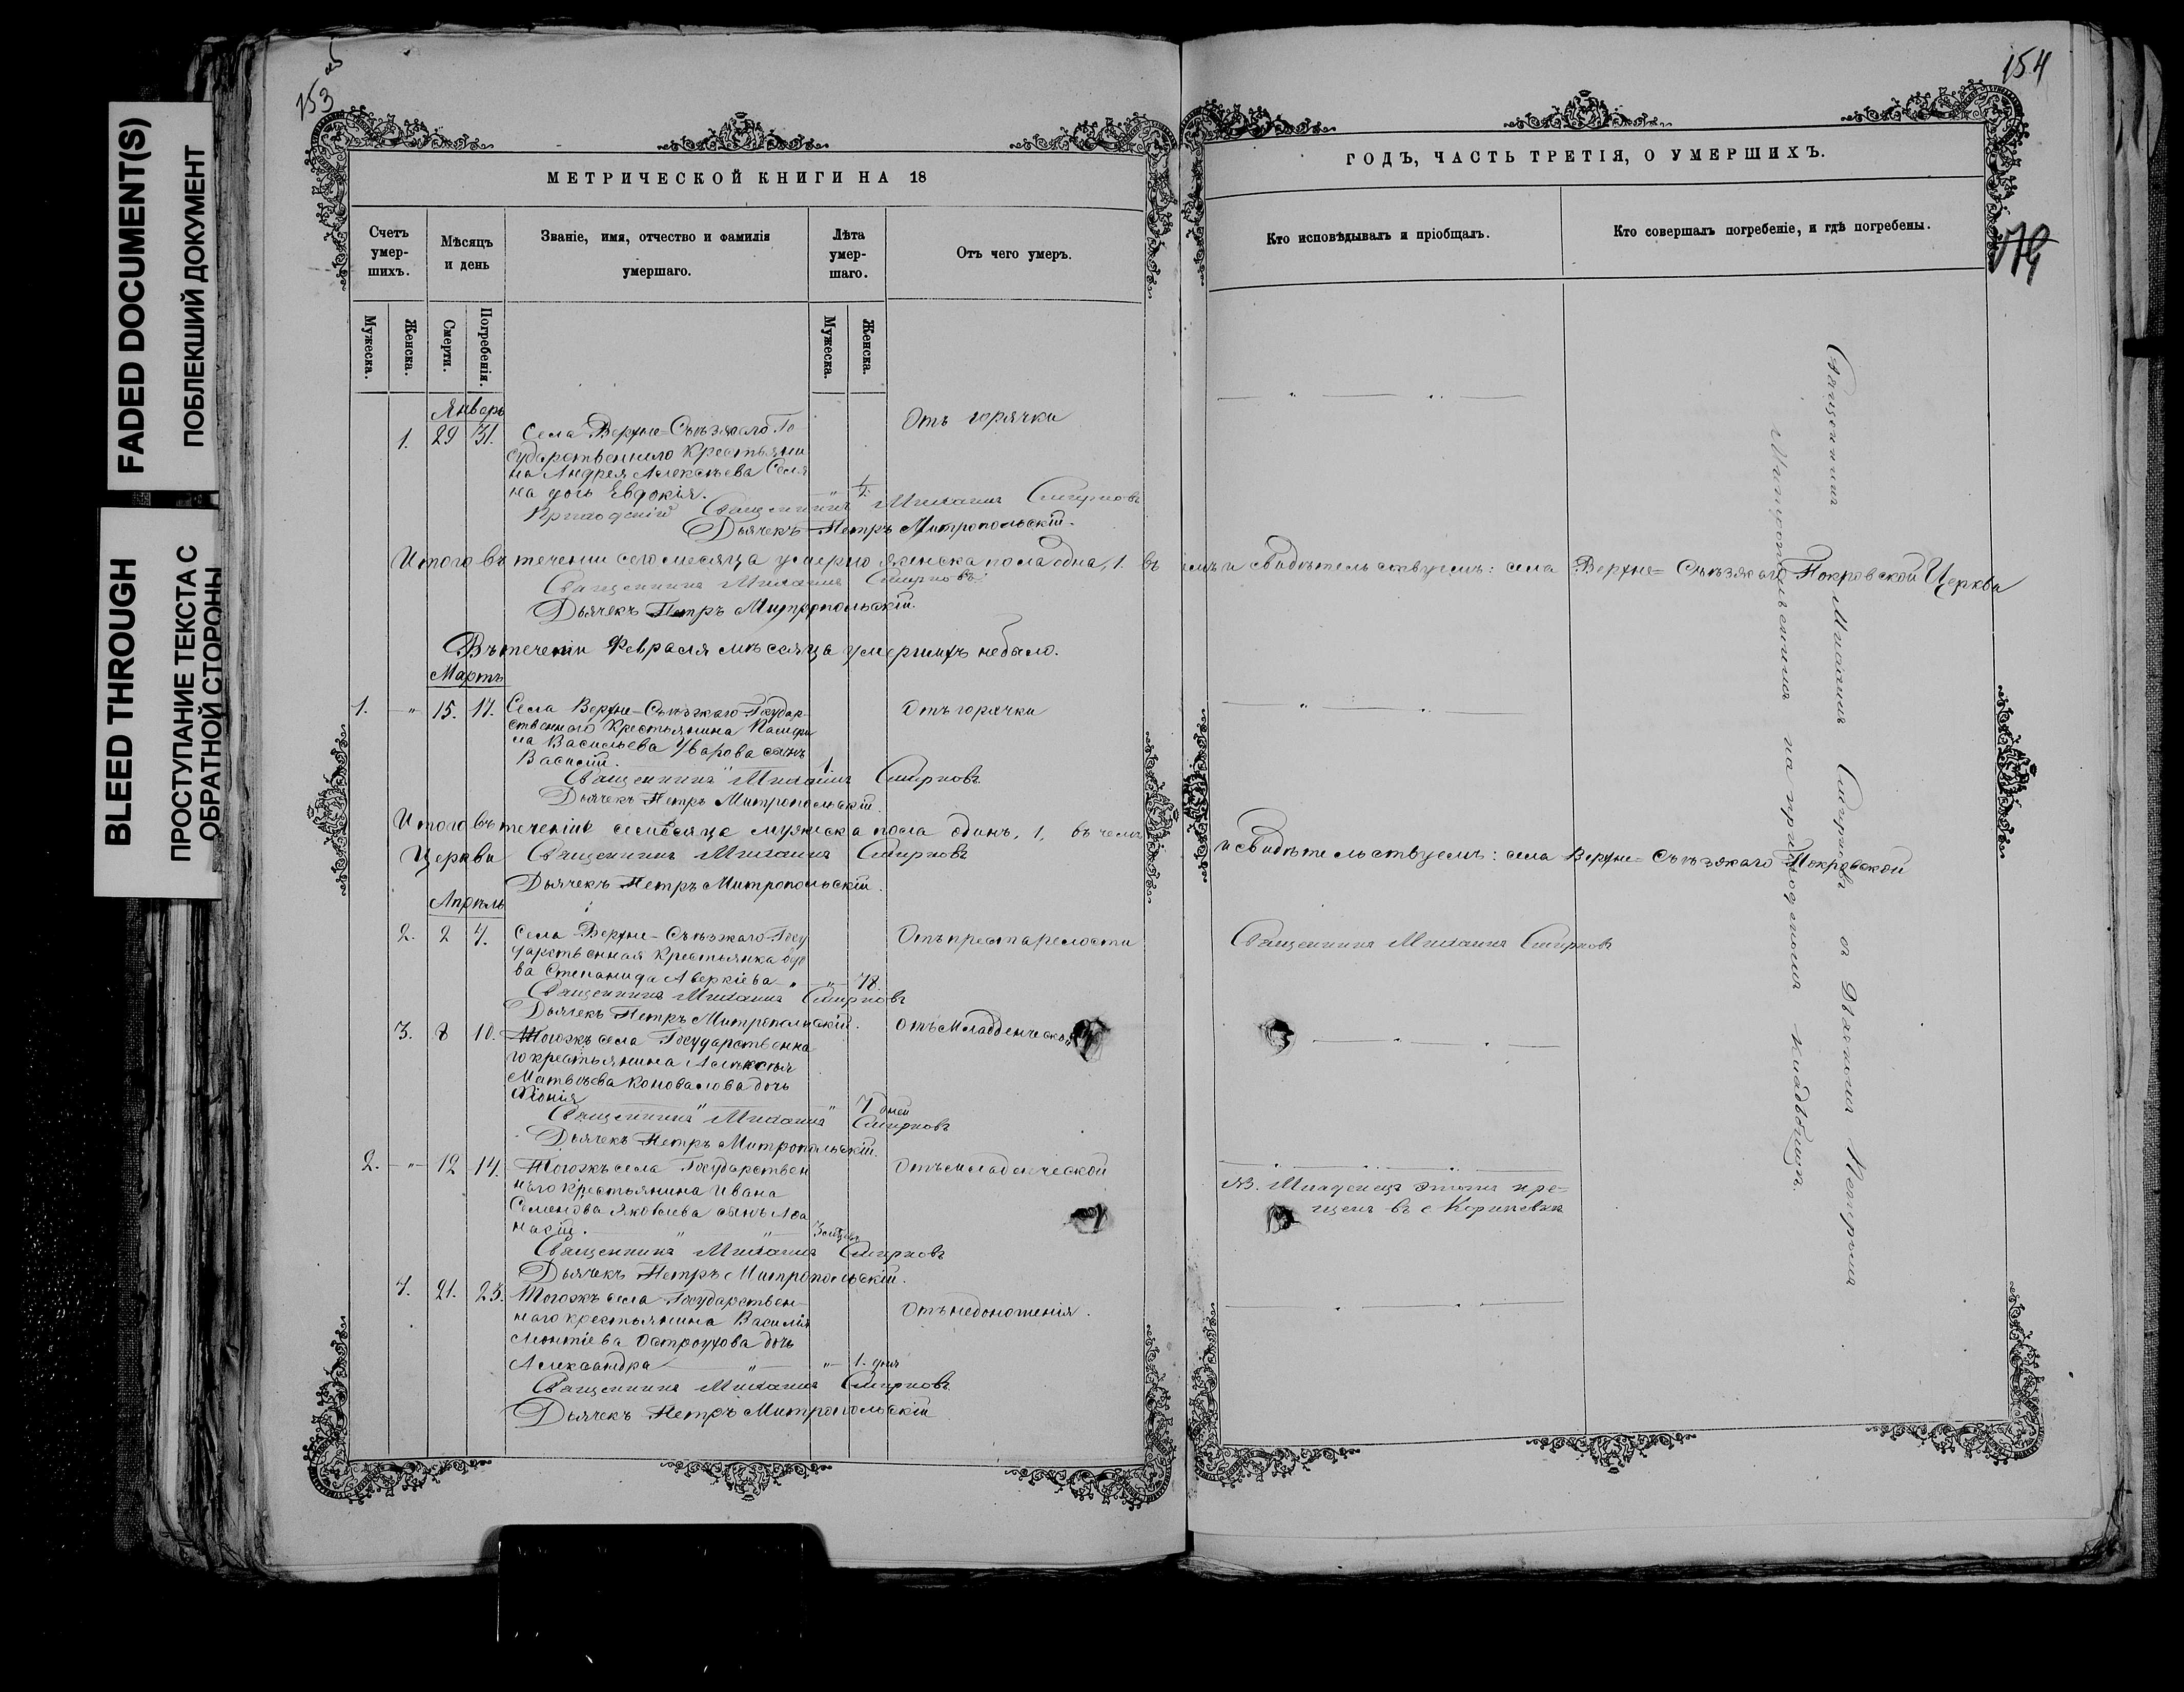 FADED DOCUMENT(S)
ПОБЛЕКШИЙ ДОКУМЕНТ
BLEED THROUGH
ПРОСТУПАНИЕ ТЕКСТА С
ОБРАТНОЙ СТОРОНЫ
153 об
МЕТРИЧЕСКОЙ КНИГИ НА 18
Счетъ умер-шихъ.
Мѣсяцъ и день
Званіе, имя, отчество и фамилія умершаго.
Лѣта умер-шаго.
Отъ чего умеръ.
Мужеска.
Женска.
Смерти.
Погребенія.
Мужеска.
Женска.
Январь
1. 29 31. Села Верхне-Съѣзжаго Го- Отъ горячки
сударственнаго Крестьяни
на Андрея Алексѣева
на дочь Евдокія.
Приходскій Священникъ Михаилъ Смирновъ
Дьячекъ Петръ Митропольскій.
Итого въ теченіи сего месяца умерло женска пола одна, 1. въ
Священникъ Михаилъ Смирновъ
Дьячекъ Петръ Митропольскій.
Въ теченіи Февраля мѣсяца умершихъ небыло.
Мартъ
1. " 15. 17. Села Верхне-Съѣзжаго Государ- Отъ горячки
ственнаго Крестьянина
ла Васильева Уварова сынъ
Василій. 1
Священникъ Михаилъ Смирновъ
Дьячекъ Петръ Митропольскій.
Итого въ теченіи сего месяца мужеска пола одинъ, 1, въ чемъ
Церкви Священникъ Михаилъ Смирновъ
Дьячекъ Петръ Митропольскій.
Апрѣль
2. 2 4. Села Верхне-Съѣзжаго Госу Отъ престарелости
дарственная Крестьянка вдо
ва Степанида Аверкіева " 78.
Священникъ Михаилъ Смирновъ
Дьячекъ Петръ Митропольскій.
3. 8 10. Тогожъ села Государственна Отъ младденческой
го крестьянина Алексѣя
Матвѣева Коновалова дочь
Хіонія 7 дней
Священникъ Михаилъ Смирновъ
Дьячекъ Петръ Митропольскій.
2. " 12 14. Тогожъ села Государствен Отъ младенческой
наго крестьянина Ивана
Семенова Яковлева сынъ Аѳа
насій.
Священникъ Михаилъ Смирновъ
Дьячекъ Петръ Митропольскій.
4. 21. 23. Тогожъ села Государствен- Отъ недоношенія.
наго крестьянина Василія
Леонтіева Остроухова дочь
Александра " " 1. дня
Священникъ Михаилъ Смирновъ
Дьячекъ Петръ Митропольскій
154
ГОДЪ, ЧАСТЬ ТРЕТІЯ, О УМЕРШИХЪ.
Кто исповѣдывалъ и пріобщалъ.
Кто совершалъ погребеніе, и гдѣ погребены.
чемъ и свидѣтельствуемъ: села Верхне-Съѣзжаго Покровской Церкви
и свидѣтельствуемъ: села Верхне-Съѣзжаго Покровской
Священникъ Михаилъ Смирновъ
NB. Младенецъ этотъ кре-
щенъ въ с.
Священникъ Михаилъ Смирновъ съ Дьячкомъ Петромъ
Митропольскимъ на приходскомъ кладбищѣ.